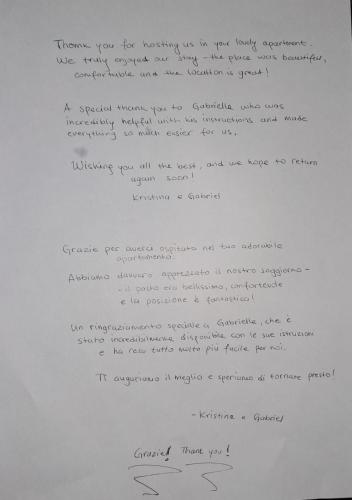 Thank you for hosting us in your lovely apartment.
We truly enjoyed our stay - the place was beautiful,
comfortable and the location is great!
A special thank you to Gabrielle, who was
incredibly helpful with his instructions and made
everything so much easier for us.
Wishing you all the best, and we hope to return
again soon!
Kristina e Gabriel
Grazie per averci ospitato nel tuo adorabile
apartamento.
Abbiamo davvero apprezzato il nostro soggiorno -
- il posto era bellissimo, confortevole
e la posizione è fantastica!
Un ringraziamento speciale a Gabrielle, che è
stato incredibilmente disponibile con le sue istruzioni
e ha reso tutto molto più facile per noi.
Ti auguriamo il meglio e speriamo di tornare presto!
- Kristina e Gabriel
Grazie! Thank you!